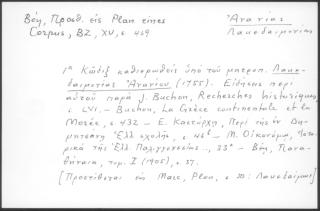 Βέη, Προσθ. εἰς Plan. τινες
Corpus, BZ, XV, σ. 469
Ἀνανίας
Λακεδαιμονίας
1α Κῶδιξ καθιερωθεὶς ὑπὸ τοῦ μητροπ. Λακε-
δαιμονίας Ἀνανίου (1755). Εἰδήσεις περὶ
αὐτοῦ παρὰ J. Buchon, Recherches historiques
I. LVI. – Buchon, La Grèce continentale et la
Morée, σ. 432 – Ε. Καστόρχη, Περὶ τῆς ἐν Δημ-
ητσάνῃ Ἑλλ. σχολῆς, σ. 46 – Μ. Οἰκονόμου, Ἱστο-
ρικὰ τῆς Ἑλλ. Παλιγγενεσίας .., 33 – Βέη, Πανα-
θήναια, τομ. Ι (1905), σ. 57.
[Προστίθεται εἰς Marc, Plan, σ. 30: Λακεδαίμων]